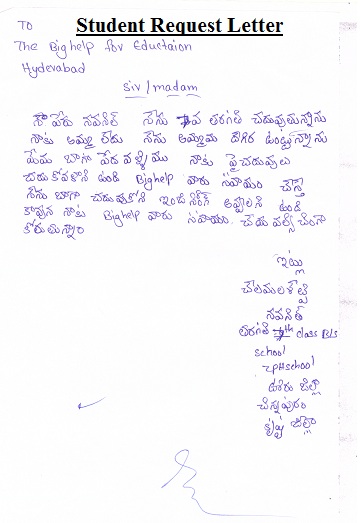 Student Request Letter
TO
The Bighelp for Eductaion
Hyderabad
Sir / madam
నా పేరు నవనీత్ నేను 7వ తరగతి చదువుతున్నాను
నాకు అమ్మ లేదు నేను అమ్మమ్మ దగ్గర ఉంటున్నాను
మేము బాగా పేద నాకు పైచదువులు
చదుకోవలని ఉంది Bighelp వారు సహాయం చేస్తే
నేను బాగా చదువుకోని అవ్వాలని ఉంది
కావున నాకు Bighelp వారు సహాయం
కోరుతున్నాం
ఇట్లు
నవనీత్
తరగతి 7th class
School
ZPH School
ఊరు జిల్లా
చిన్నపురం
కృష్ణ జిల్లా